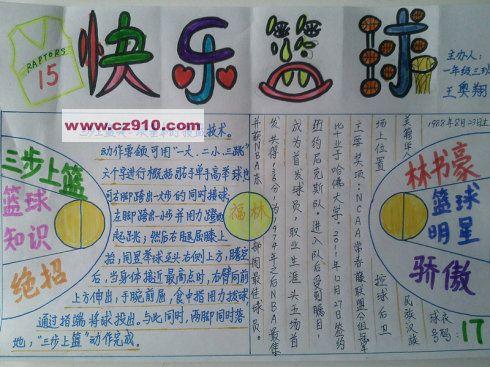 RAPTORS
15
快乐篮球
主办人：
一年级三班
王奥翔
www.cz910.com
技术。
动作要领可用"一大、二小、三跳"
六个字进行概括
右脚跨出一大步的同时接球
左脚跨出一小步并用力蹬地
起跳；然后右腿屈膝上
抬，同是举球至头右侧上方，腾空
后，当身体接近最高点时，右臂向前
上方伸出，手腕前屈，食中指用力拨球
通过指端将球投出。与此同时，两脚同时落
地，"三步上篮"动作完成。
三步上篮
篮球
知识
绝招
福林
1988年8月23日出
美籍华人
民族汉族
球衣
号码：17
场上位置
控球后卫
主要奖项：NCAA常春藤联盟分组最
毕业于哈佛大学。
27日签约
纽约尼克斯队。进入队后受到瞩目，
成为首发球员，职业生涯头五场首
分为1974年之后NBA最
并获NBA东部周最佳球员。
林书豪
篮球
明星
骄傲